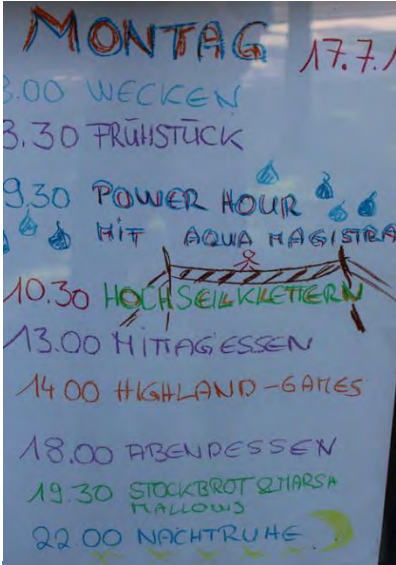 MONTAG 17.7.1
8.00 WECKEN
8.30 FRÜHSTÜCK
9.30 POWER HOUR
MIT AQUA MAGISTRA
10.30 HOCHSEILKLETTERN
13.00 MITTAGESSEN
14 00 HIGHLAND-GAMES
18.00 ABENDESSEN
19.30 STOCKBROT & MARSA
MALLOWS
22.00 NACHTRUHE